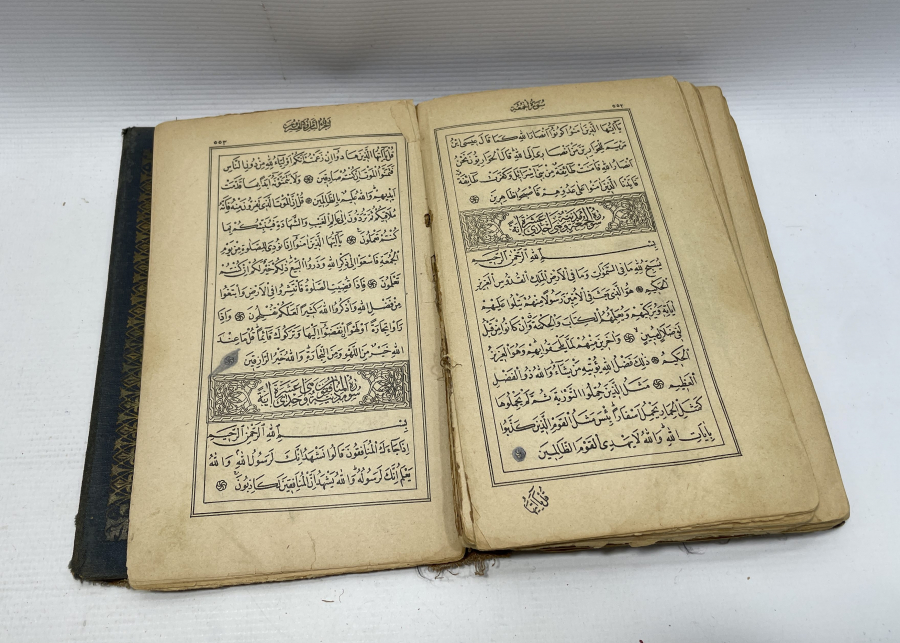 سورة الجمعة ٥٥٢
يا ايها الذين امنوا كونوا انصار الله كما قال عيسى ابن
مريم للحواريين من انصارى الى الله قال الحواريون نحن
انصار الله فامنت طائفة من بنى اسرائيل وكفرت طائفة
فايدنا الذين امنوا على عدوهم فاصبحوا ظاهرين
سورة الجمعة مدنية وهى احدى عشرة اية
بسم الله الرحمن الرحيم
يسبح لله ما فى السموات وما فى الارض الملك القدوس العزيز
الحكيم هو الذى بعث فى الاميين رسولا منهم يتلوا عليهم
اياته ويزكيهم ويعلمهم الكتاب والحكمة وان كانوا من قبل
لفى ضلال مبين واخرين منهم لما يلحقوا بهم وهو العزيز
الحكيم ذلك فضل الله يؤتيه من يشاء والله ذو الفضل
العظيم مثل الذين حملوا التورية ثم لم يحملوها
كمثل الحمار يحمل اسفارا بئس مثل القوم الذين كذبوا
بايات الله والله لا يهدى القوم الظالمين
قل يا ايها
٥٥٣
قل يا ايها الذين هادوا ان زعمتم انكم اولياء لله من دون الناس
فتمنوا الموت ان كنتم صادقين ولا يتمنونه ابدا بما قدمت
ايديهم والله عليم بالظالمين قل ان الموت الذى تفرون منه فانه
ملاقيكم ثم تردون الى عالم الغيب والشهادة فينبئكم بما
كنتم تعملون يا ايها الذين امنوا اذا نودى للصلوة من يوم
الجمعة فاسعوا الى ذكر الله وذروا البيع ذلكم خير لكم ان كنتم
تعلمون فاذا قضيت الصلوة فانتشروا فى الارض وابتغوا
من فضل الله واذكروا الله كثيرا لعلكم تفلحون واذا
راوا تجارة او لهوا انفضوا اليها وتركوك قائما قل ما عند
الله خير من اللهو ومن التجارة والله خير الرازقين
سورة المنافقين مدنية وهى احدى عشرة اية
بسم الله الرحمن الرحيم
اذا جاءك المنافقون قالوا نشهد انك لرسول الله والله
يعلم انك لرسوله والله يشهد ان المنافقين لكاذبون